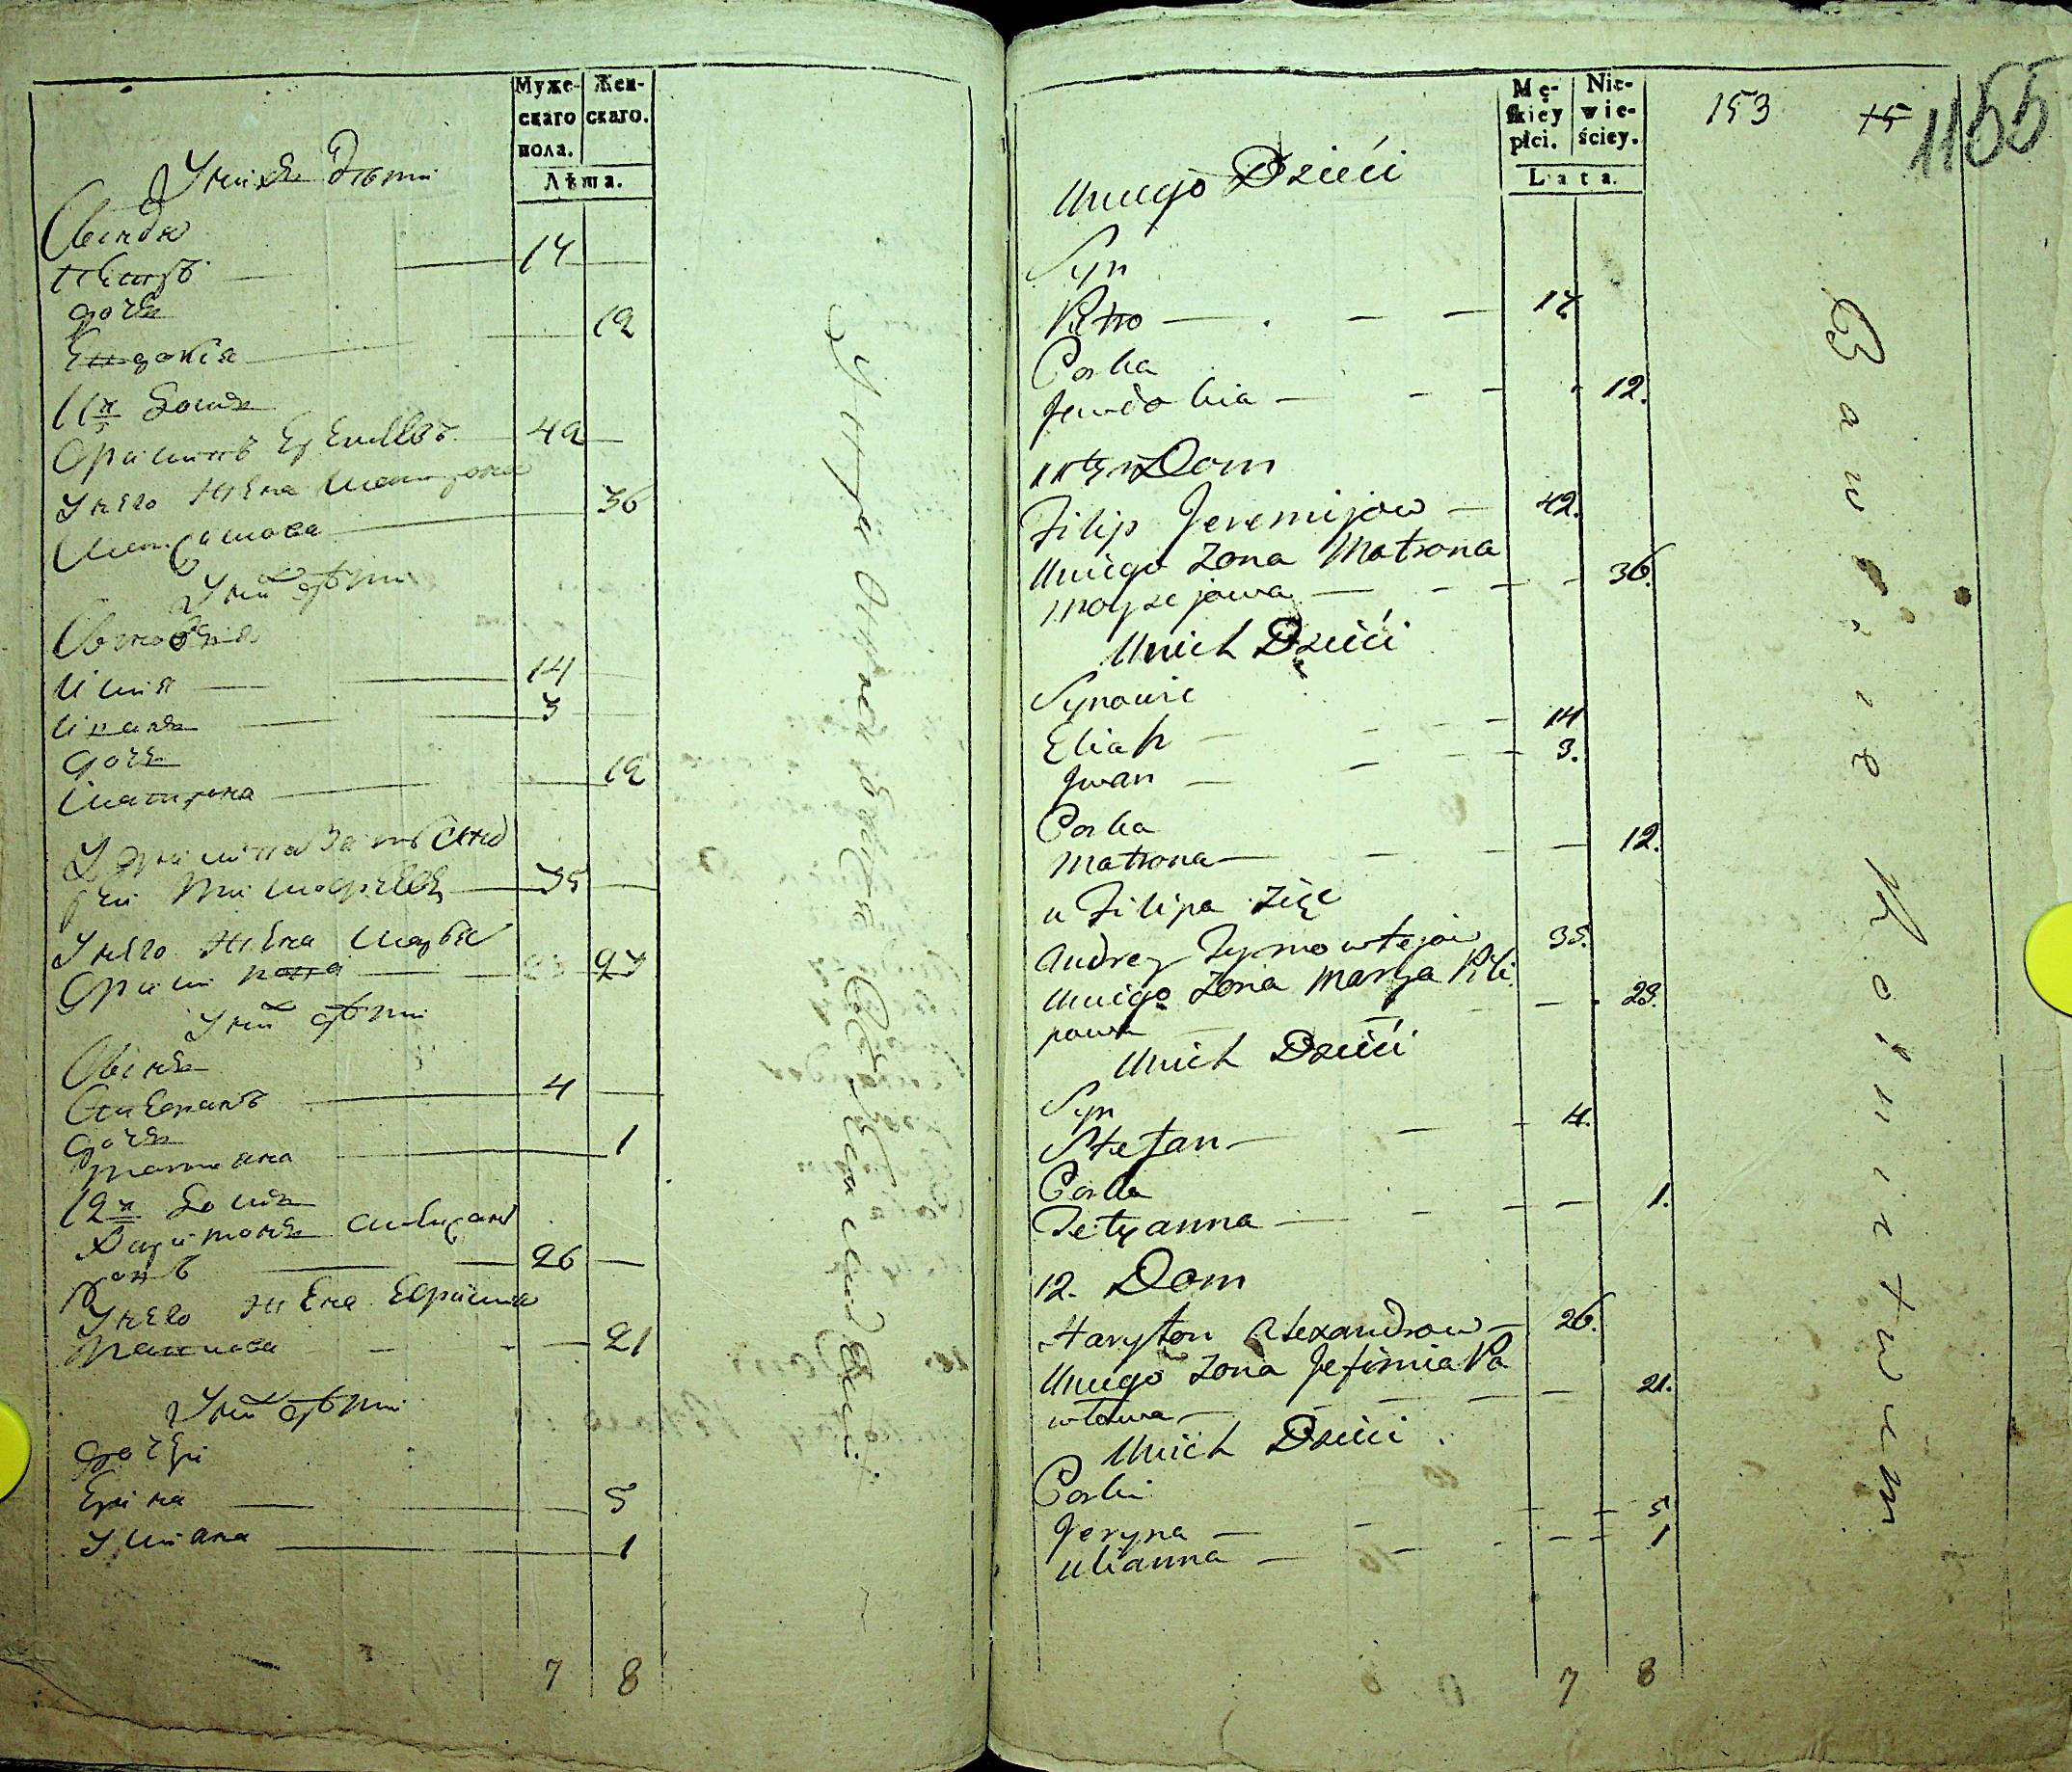 Муже-
скаго
пола.
Жен-
скаго.
Лѣта.
У нихъ Дѣти
Сынъ
Петръ 14
дочь
Евдокія 12
11й Домъ
Филипъ Еремѣевъ 42
У него жена Матрона 36
У нихъ дѣти
Сыновья
Илья 14
Иванъ 3
дочь
Матрона 12
У Филипа зять Анд
рей Тимофеевъ 35
У него жена Марья
Филипова 23
У нихъ дѣти
Сынъ
Стефанъ 4
дочь
Татиана 1
12й Домъ
Харитонъ Александ
ровъ 26
У него жена Ефимия
Павлова 21
У нихъ дѣти
дочери
Ерина 5
Улиана 1
7 8
Mę-
skiey
płci.
Nie-
wie-
ściey.
Lata.
153
15
1155
Uniego Dzieći
Syn
Petro 14
Corka
Jewdokia 12.
11ty Dom
Filip Jeremijow 42.
Uniego Zona Matrona
Moyzejowa 36.
Unich Dzieći
Synowie
Eliah 14
Jwan 3.
Corka
Matrona 12.
u Filipa Zięc
Andrey Tymowtejow 35.
Uniego Zona Marya Pili
powa 23.
Unich Dzieći
Syn
Stefan 4.
Corka
Tetyanna 1.
12. Dom
Haryton Alexandrow 26.
Uniego Zona Jefimia Pa
włowa 21.
Unich Dzieći
Corki
Jeryna 5
Ulianna 1
7 8